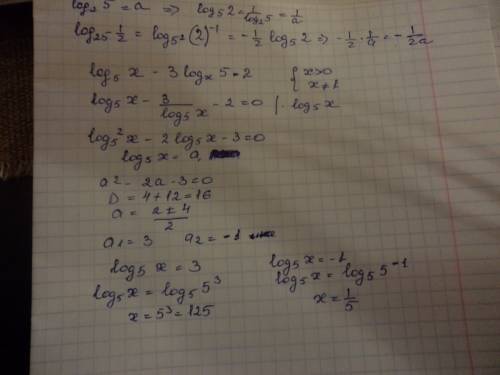 log₂ 5 = a ⇒ log₅ 2 = 1/log₂5 = 1/a
log₂₅ 1/2 = log₅² (2)⁻¹ = -1/2 log₅ 2 ⇒ -1/2 · 1/a = -1/2a
log₅ x - 3 logₓ 5 = 2 { x>0
x≠1
log₅ x - 3/log₅ x - 2 = 0 | · log₅ x
log₅² x - 2 log₅ x - 3 = 0
log₅ x = a,
a² - 2a - 3 = 0
D = 4 + 12 = 16
a = 2 ± 4 / 2
a₁ = 3 a₂ = -1
log₅ x = 3
log₅ x = log₅ 5³
x = 5³ = 125
log₅ x = -1
log₅ x = log₅ 5⁻¹
x = 1/5